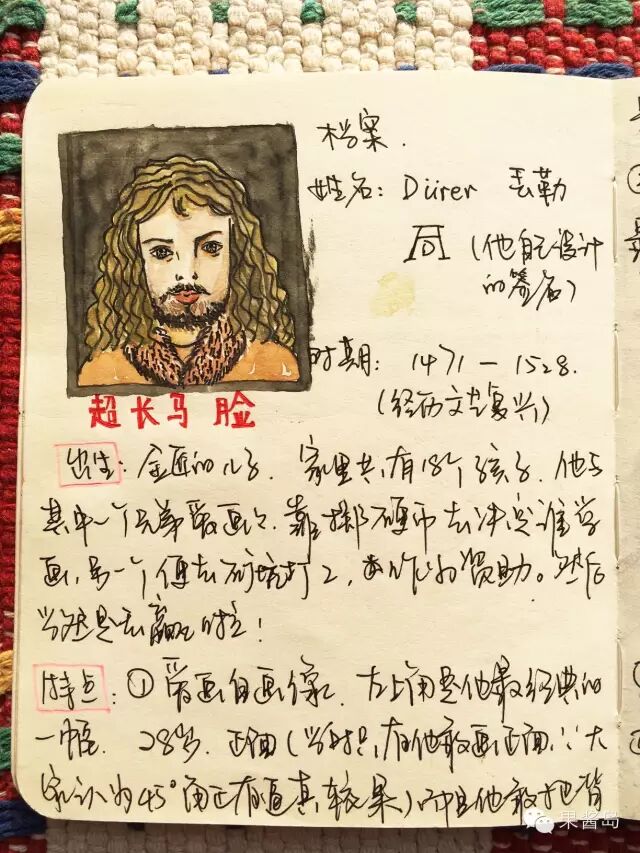 档案.
姓名: Dürer 丢勒
(他自己设计
的签名)
时期: 1471—1528.
(经历文艺复兴)
超长马脸
出生: 金匠的儿子. 家里共有18个孩子. 他与
其中一个兄弟爱画画. 靠掷硬币去决定谁学
画, 另一个便去矿坑打工, 资助。然后
当然是丢赢啦!
特点: ① 爱画自画像. 左上角是他最经典的
一幅. 28岁. 正面(当时只有他敢画正面, ∵大
家认为45°角正有逼真效果) 而且他敢把背
果酱岛